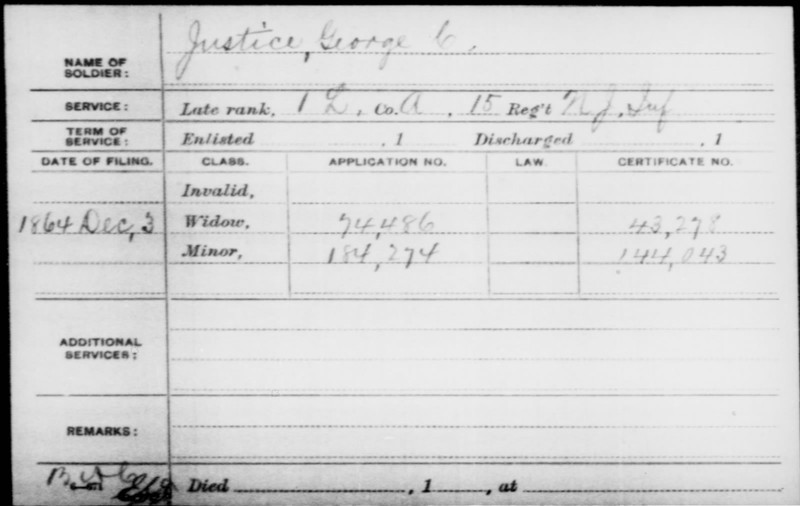 NAME OF SOLDIER: Justice, George C.
SERVICE: Late rank, 1 L, Co. A, 15 Reg't N J. Inf
TERM OF SERVICE: Enlisted , 1 Discharged , 1
DATE OF FILING. CLASS. APPLICATION NO. LAW. CERTIFICATE NO.
Invalid,
1864 Dec, 3 Widow, 74,486 43,278
Minor, 184,274 144,043
ADDITIONAL SERVICES:
REMARKS:
Died , 1 , at